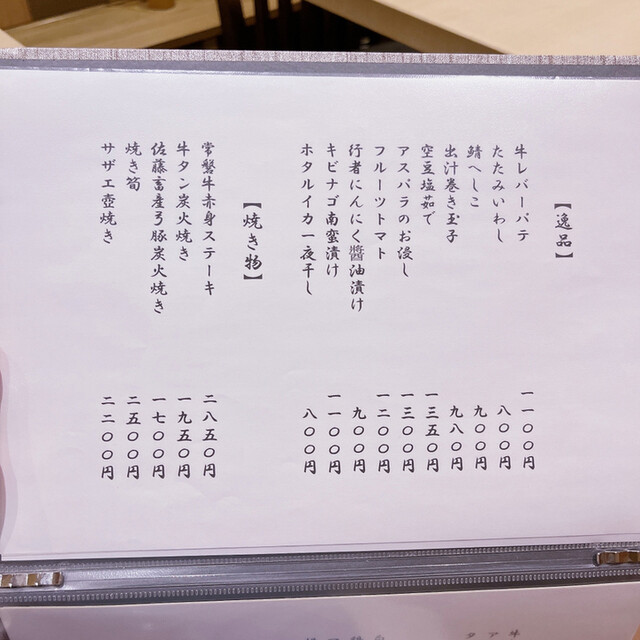 【逸品】
牛レバーパテ 一一〇〇円
たたみいわし 八〇〇円
鯖へしこ 九〇〇円
出汁巻き玉子 九八〇円
空豆塩茹で 一三五〇円
アスパラのお浸し 一三〇〇円
フルーツトマト 一二〇〇円
行者にんにく醬油漬け 九〇〇円
キビナゴ南蛮漬け 一一〇〇円
ホタルイカ一夜干し 八〇〇円
【焼き物】
常磐牛赤身ステーキ 二八五〇円
牛タン炭火焼き 一九五〇円
佐藤畜産弓豚炭火焼き 一七〇〇円
焼き筍 二五〇〇円
サザエ壺焼き 二二〇〇円